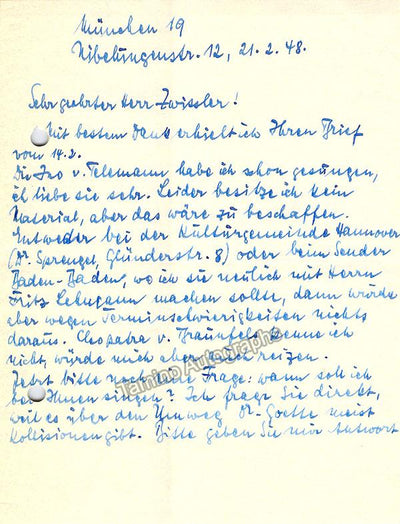 München 19
Nibelungenstr. 12, 21. 2. 48.
Sehr geehrter Herr Zwissler!
Mit bestem Dank erhielt ich Ihren Brief
vom 14. 2.
Die Ino v. Telemann habe ich schon gesungen,
ich liebe sie sehr. Leider besitze ich kein
Material, aber das wäre zu beschaffen.
Entweder bei der Kulturgemeinde Hannover
(Dr. Sprengel, Glünderstr. 8) oder beim Sender
Baden-Baden, wo ich sie neulich mit Herrn
Fritz Lehmann machen sollte, dann wurde
aber wegen Terminschwierigkeiten nichts
daraus. Cleopatra v. Traunfels kenne ich
nicht, würde mich aber auch reizen.
Jetzt bitte noch eine Frage: wann soll ich
bei Ihnen singen? Ich frage Sie direkt,
weil es über den Umweg Dr. Goette meist
Kollisionen gibt. Bitte geben Sie mir Antwort
Tamino Autographs